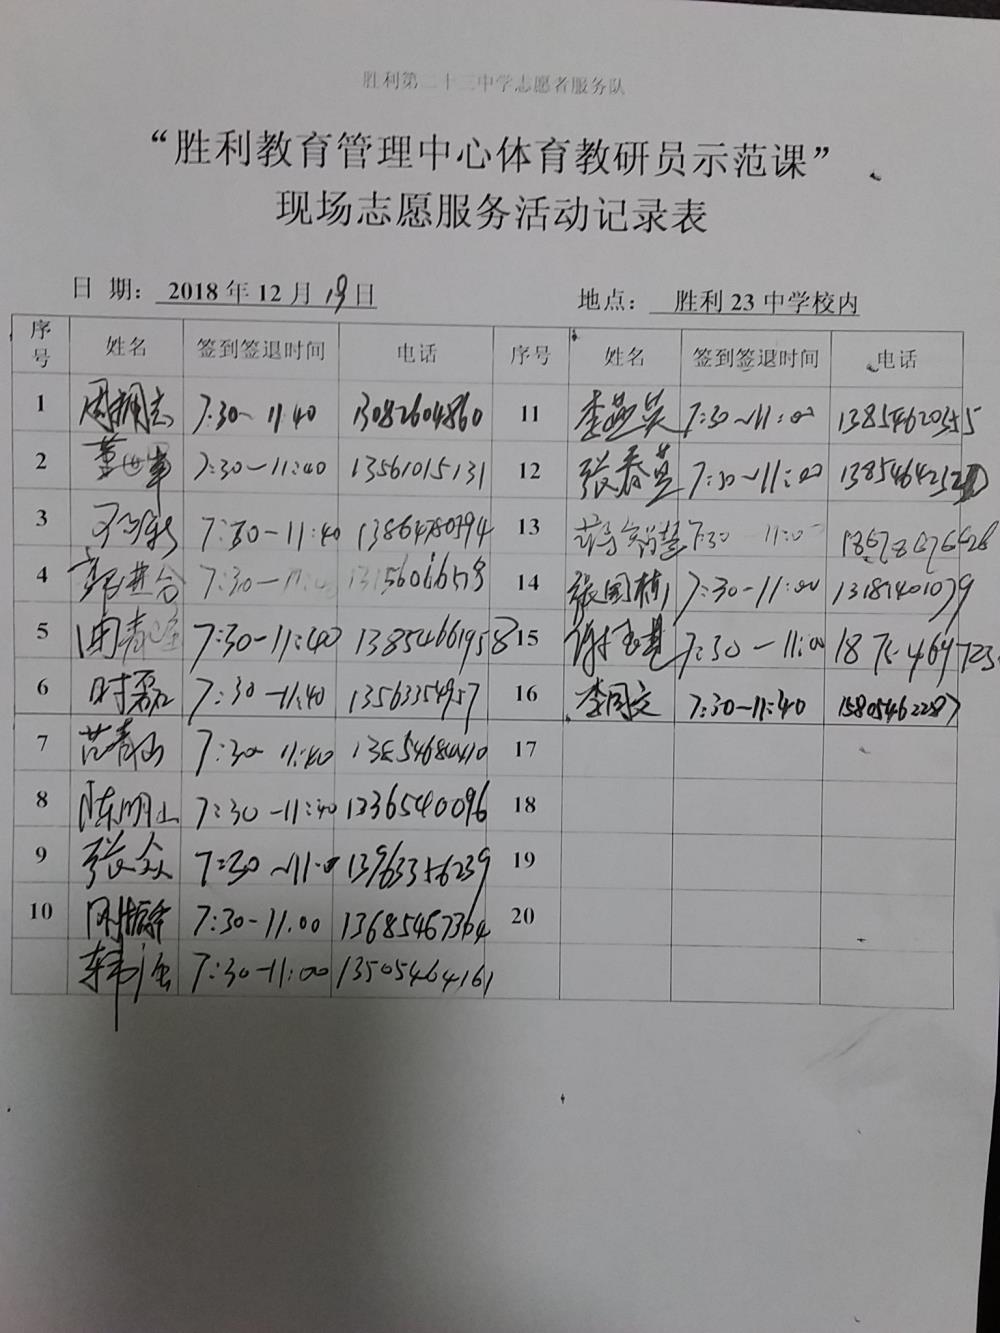 胜利第二十三中学志愿者服务队
“胜利教育管理中心体育教研员示范课”
现场志愿服务活动记录表
日 期： 2018 年 12 月 19 日 地点： 胜利 23 中学校内
序号 姓名 签到签退时间 电话 序号 姓名 签到签退时间 电话
1 7:30~11:40 13082604860 11 李燕英 7:30~11:00
2 董世军 7:30-11:40 13561015131 12 张春莲 7:30~11:00
3 7:30-11:40 13864780794 13 7:30 11:00
4 7:30- 14 张国栋 7:30-11:00 13181401079
5 7:30-11:40 13854661958 15 7:30-11:00
6 时磊 7:30-11:40 13563354957 16 李国文 7:30-11:40 15805462287
7 范青山 7:30-11:40 13854680410 17
8 陈明山 7:30-11:40 18
9 张众 7:30~11:00 19
10 7:30-11.00 13685467364 20
7:30-11:00 13505464161